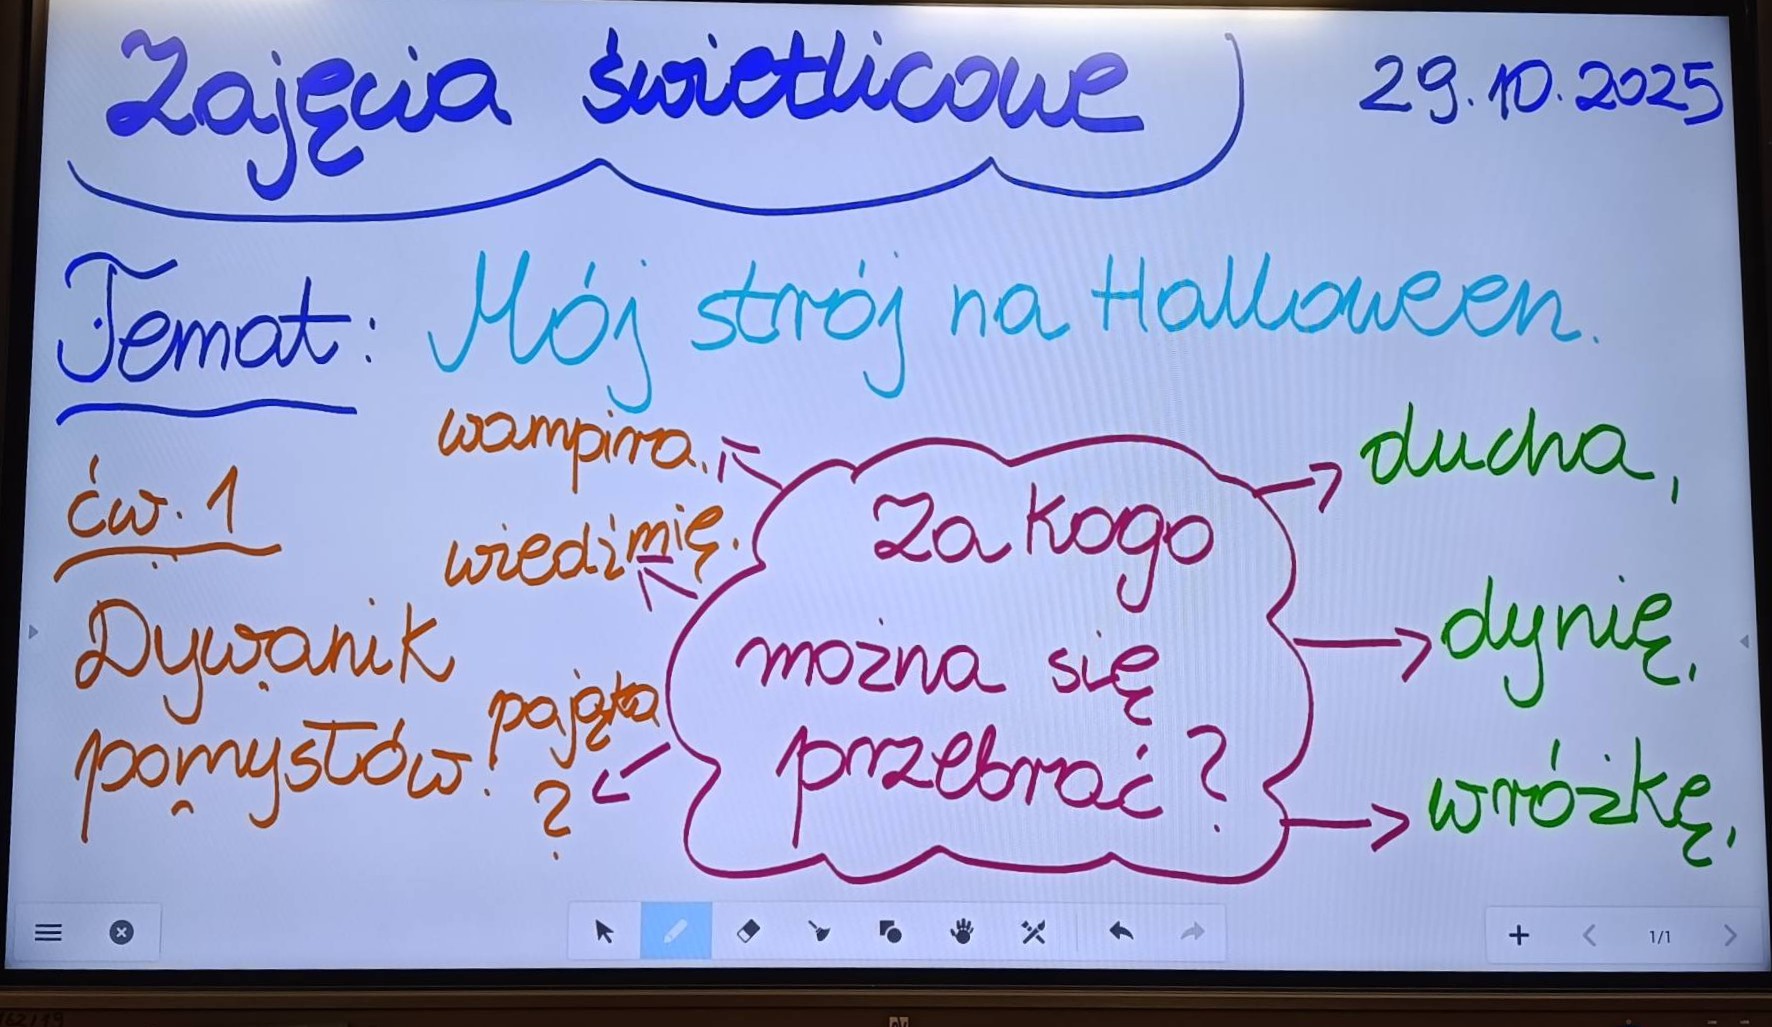 Zajęcia świetlicowe
29.10.2025
Temat: Mój strój na Halloween.
ćw. 1
Dywanik
pomysłów.
wampira.
wiedźmię.
pająka
?
Za kogo
można się
przebrać?
ducha,
dynię,
wróżkę,
1/1